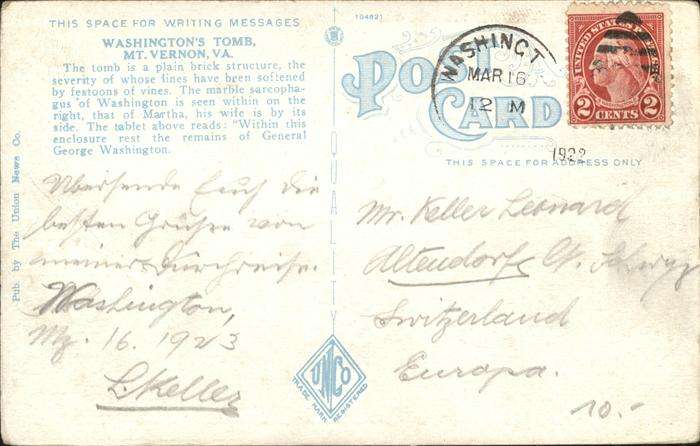 THIS SPACE FOR WRITING MESSAGES
WASHINGTON'S TOMB,
MT. VERNON, VA.
The tomb is a plain brick structure, the
severity of whose lines have been softened
by festoons of vines. The marble sarcopha-
gus of Washington is seen within on the
right, that of Martha, his wife is by its
side. The tablet above reads: "Within this
enclosure rest the remains of General
George Washington.
Pub. by The Union News Co.
Übersende Euch die
besten Grüsse von
meiner Durchreise.
Washington,
Mz. 16. 1923
L. Keller
104821
POST CARD
QUALITY
UNCO
TRADE MARK
REGISTERED
WASHINGT
MAR 16
12 M
UNITED STATES
2 CENTS 2
1922
THIS SPACE FOR ADDRESS ONLY
Mr. Keller Leonard
Altendorf, Ct. Schwyz
Switzerland
Europa.
10.-